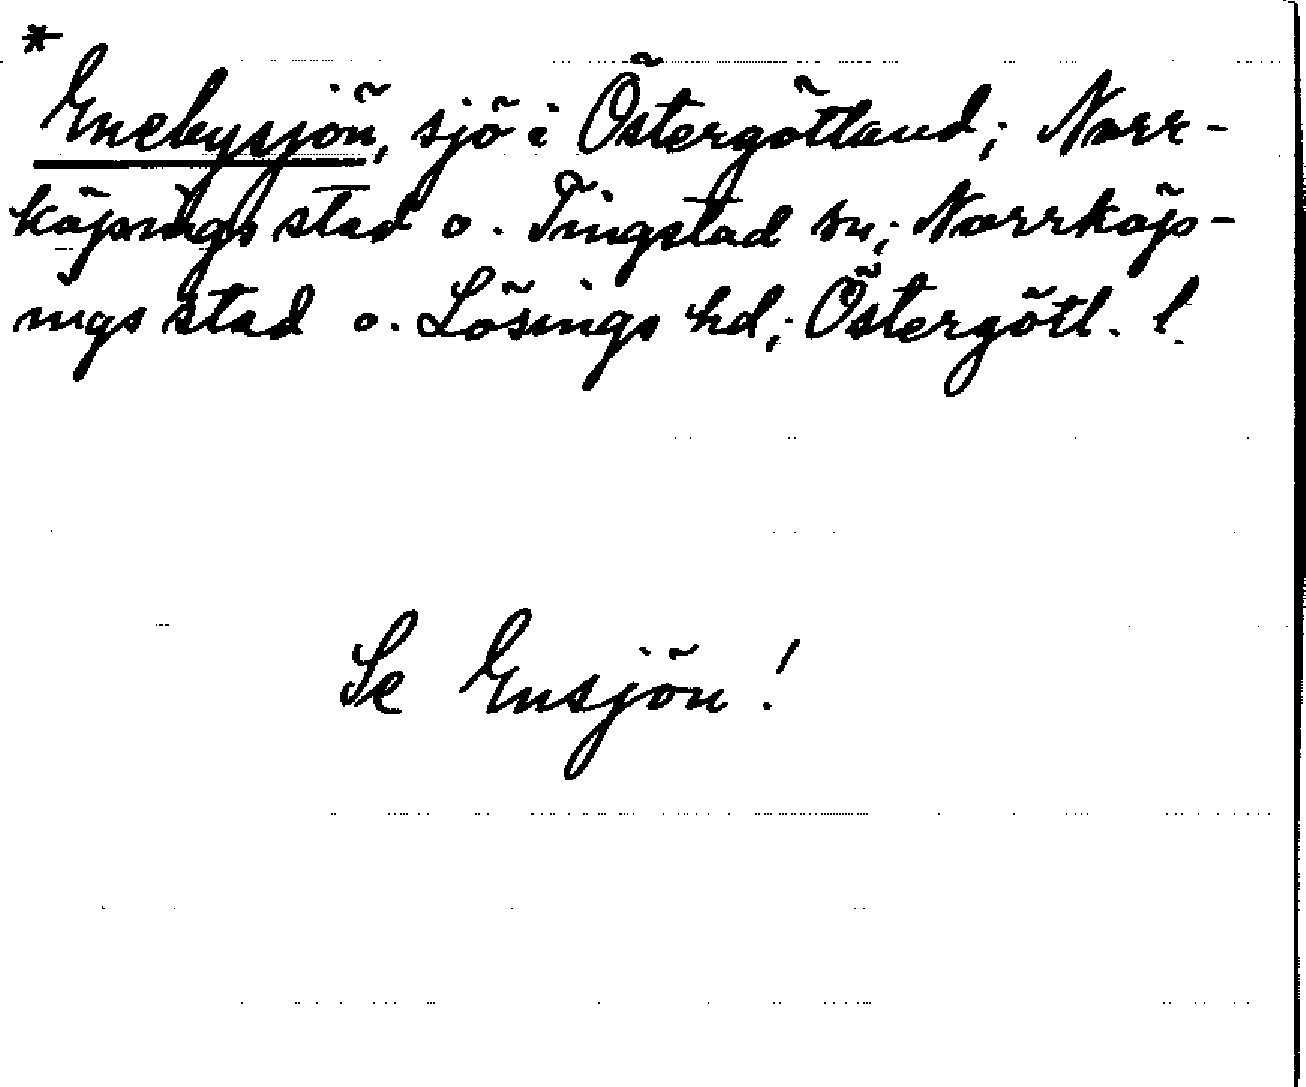 * Enebysjön, sjö i Östergötland; Norr-
köpings stad o. Tingstad sn; Norrköp-
ings stad o. Lösings hd; Östergötl. l.
Se Ensjön!